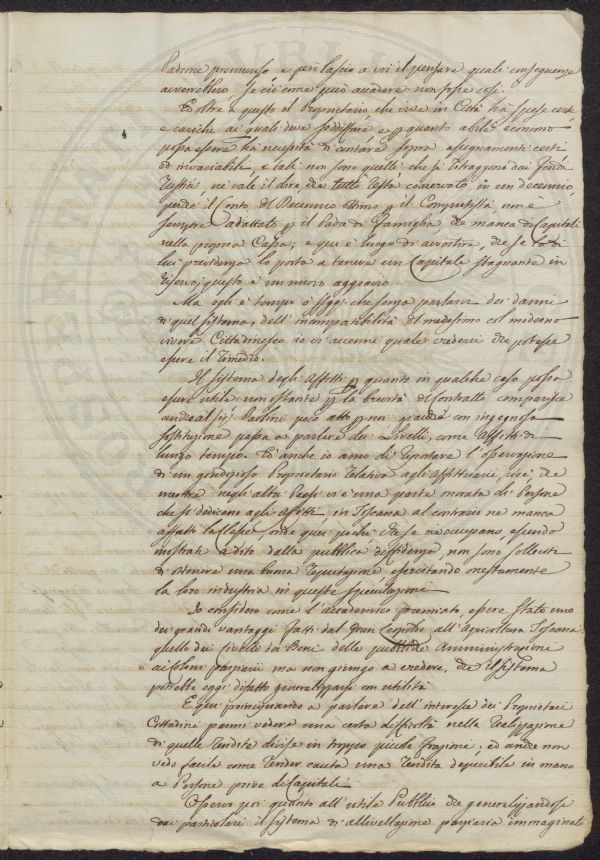 Padrone premuroso, e però lascio a voi il pensare quali conseguenze
avverrebbero se ciò come può accadere non fosse così.
Ed oltre a questo il Proprietario che vive in Città ha spese certe
e cariche ai quali deve soddisfare, e p quanto abile economo
possa essere ha necessità di contare sopra assegnamenti certi
ed invariabili, e tali non sono quelli che si ritraggono dai fondi
rustici ne vale il dire che tutto resta conservato in un decennio,
perchè il Conto di Decennio ottimo p il Computista non è
sempre adattato p il Padre di Famiglia che manca di Capitali
nella propria Cassa, e qui è luogo di avvertire, che se la di
lui previdenza lo porta a tenere un Capitale stagnante in
riserva, questo è un nuovo aggravio.
Ma ogli è tempo o Sigg.i che senza parlarvi dei danni
di quel sistema, dell' incompatibilità del medesimo col moderno
vivere Cittadinesco io vi accenni quale crederei che potesse
essere il rimedio.
Il sistema degli Affitti p quanto in qualche caso possa
essere utile non ostante p la brevità del contratto comparisce
anche al Sig. Paolini poco atto p noi giacchè con ingegnosa
sostituzione passa a parlare dei Livelli, come Affitti di
lungo tempo. Ed anche io amo di riportare l'osservazione
di un giudizioso Proprietario relativa agli Affittuarii, cioè che
mentre negli altri Paesi vi è una parte onorata di Persone
che si dedicano agli Affitti, in Toscana al contrario ne manca
affatto la Classe, onde quei pochi che se ne occupano, essendo
mostrati a dito dalla pubblica diffidenza, non sono solleciti
di ottenere una buona reputazione esercitando onestamente
la loro industria in queste speculazioni.
Io considero come l'accademico premiato, essere stato uno
dei grandi vantaggi fatti dal Gran Leopoldo all'Agricoltura Toscana
quello dei livelli dei Beni delle pubbliche Amministrazioni
ai coloni parziarii ma non giungo a credere, che il sistema
potrebbe oggi difatto generalizzarsi con utilità.
E qui principiando a parlare dell'interesse dei Proprietari
Cittadini parmi vedere una certa difficoltà nella realizzazione
di quelle rendite divise in troppo piccole frazioni, ed anche non
vedo facile come render cauta una rendita in mano
a Persone prive di Capitali.
Osservo poi quanto all'utile Pubblico che generalizzandosi
dai particolari il sistema di allivellazione immaginato